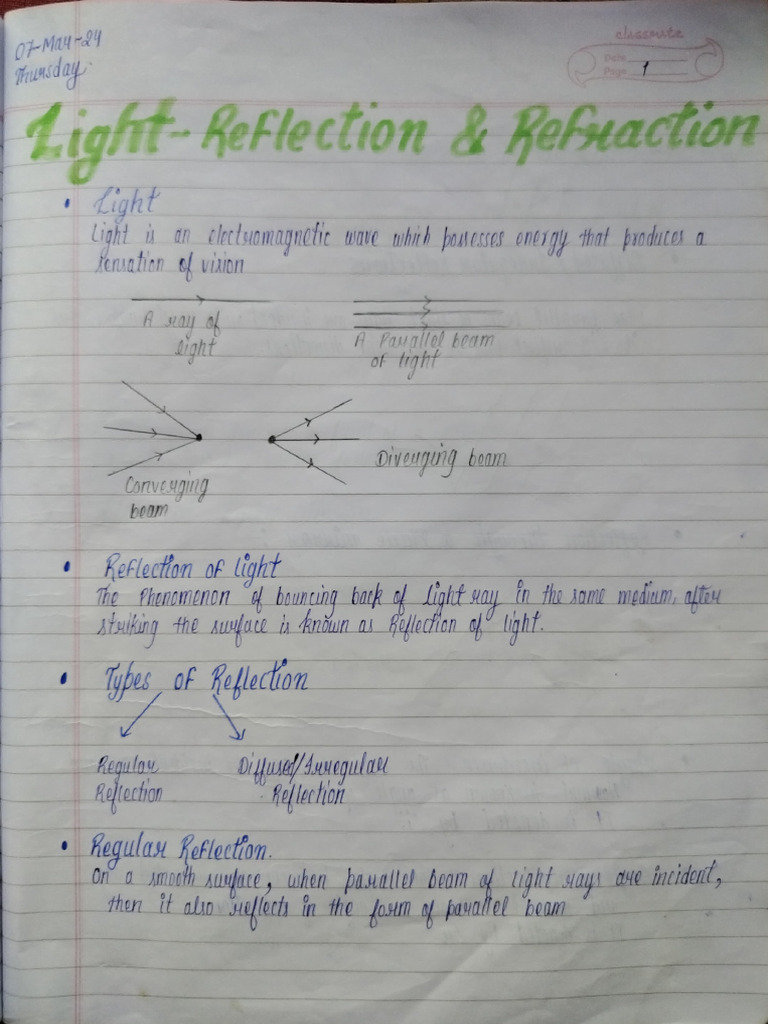 07-May-24
Thursday.
classmate
Date
Page 1
Light - Reflection & Refraction
• Light
Light is an electromagnetic wave which possesses energy that produces a
sensation of vision
A ray of
light
A Parallel beam
of light
Converging
beam
Diverging beam
• Reflection of light
The Phenomenon of bouncing back of light ray in the same medium, after
striking the surface is known as Reflection of light.
• Types of Reflection
Regular
Reflection
Diffused/Irregular
Reflection
• Regular Reflection.
On a smooth surface, when parallel beam of light rays are incident,
then it also reflects in the form of parallel beam